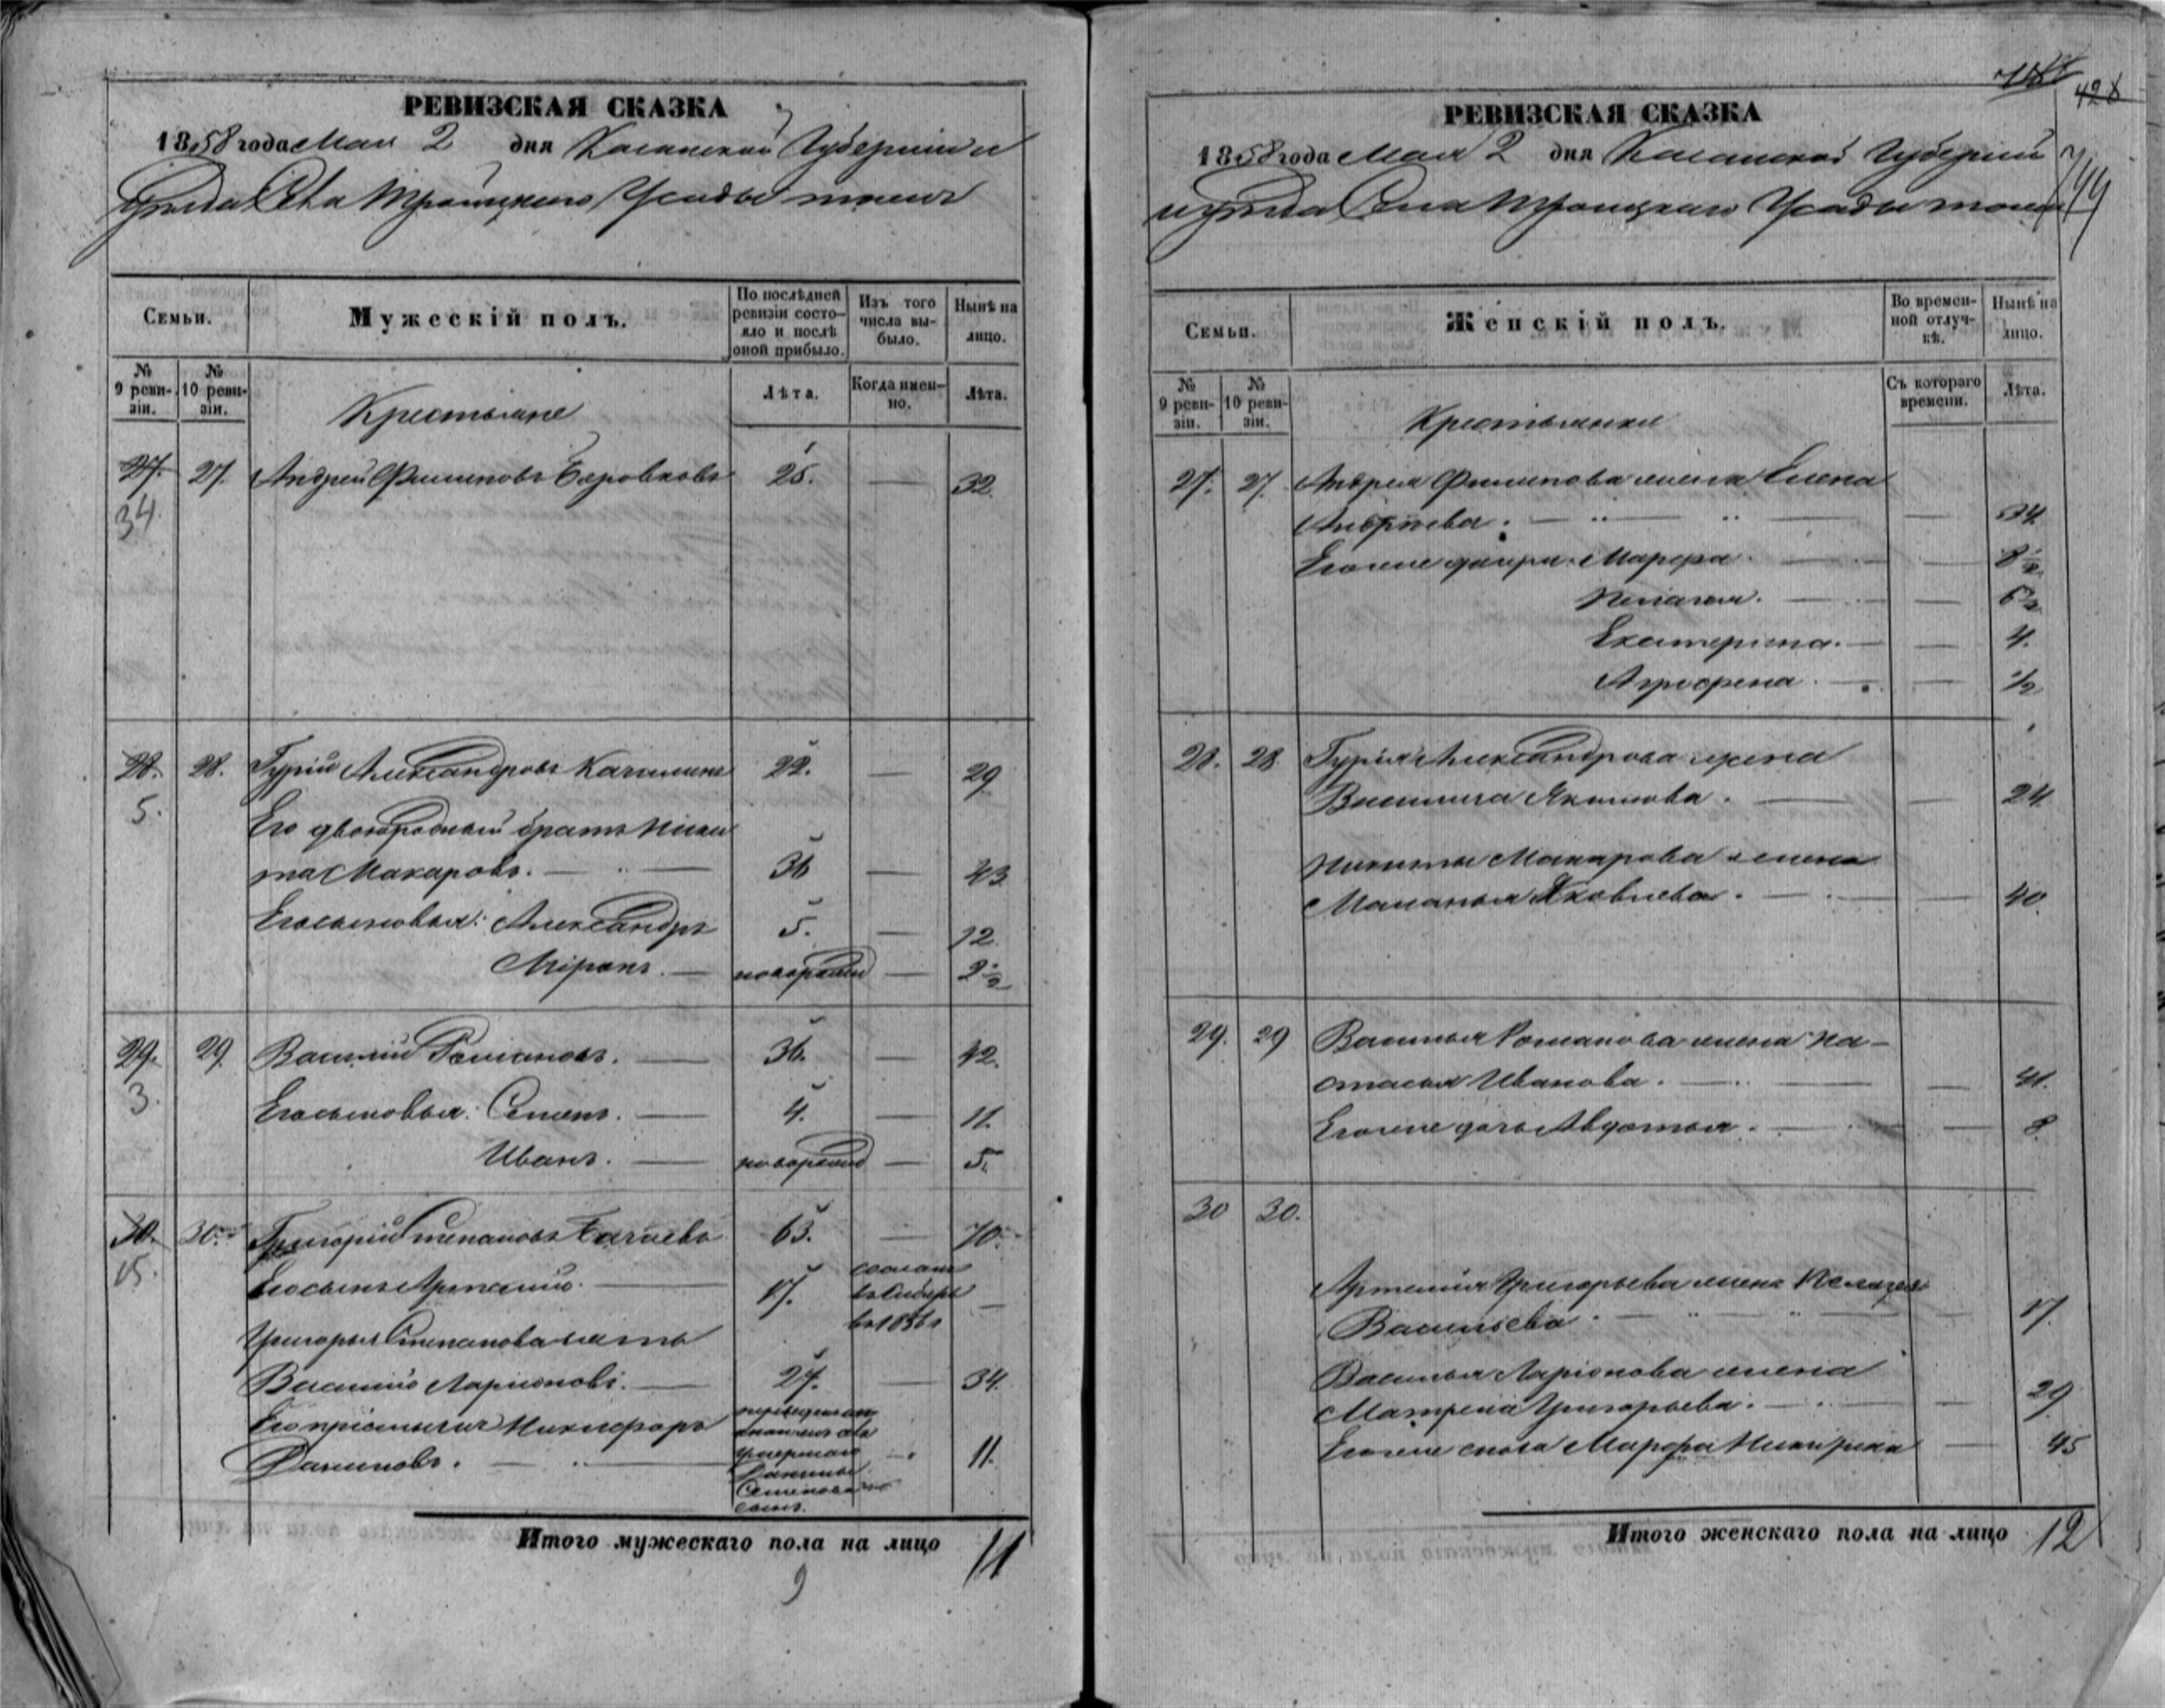 РЕВИЗСКАЯ СКАЗКА
1858 года Мая 2 дня Казанской Губерніи и
уезда Села Троицкаго Усады тожъ
Семьи.
Мужескій полъ.
По послѣдней ревизіи состояло и послѣ оной прибыло.
Изъ того числа выбыло.
Нынѣ на лицо.
№ 9 ревизіи.
№ 10 ревизіи.
Крестьяне
Лѣта.
Когда именно.
Лѣта.
27. 27. Андрей Филиповъ 25. — 32.
34.
28. 28. Гурій Александровъ 22. — 29
5. Его двоюродный братъ Ники
та Макаровъ. — 36 — 43
Его сыновья: Александръ 5. — 12.
Міронъ. — новорожден — 2 1/2
29. 29. Василій Романовъ. — 36. — 42.
3. Его сыновья: Семенъ. — 4. — 11.
Иванъ. — новорожд — 5.
30. 30. Григорій Степановъ 63. — 70.
15. Его сынъ Артемій. — 17. сосланъ въ Сибирь въ 1856 г —
Григорья Степанова зять
Василій Ларіоновъ. — 27. — 34.
Его пріемышъ Никифоръ
11.
Семенова сынъ.
Итого мужескаго пола на лицо 11
9
428
744
РЕВИЗСКАЯ СКАЗКА
1858 года Мая 2 дня Казанской Губерніи
и уезда Села Троицкаго Усады тожъ
Семьи.
Женскій полъ.
Во временной отлучкѣ.
Нынѣ на лицо.
№ 9 ревизіи.
№ 10 ревизіи.
Крестьянки
Съ котораго времени.
Лѣта.
27. 27. Андрея Филипова жена Елена
Андреева. — — 34.
Его же дочери: Марфа. — — 8 1/2
Пелагея. — — 6 1/2
Екатерина. — — 4.
Агрофена. — — 1/2
28. 28 Гурія Александрова жена
Василиса Якимова. — — 24.
Никиты Макарова жена
Маланья Яковлева. — — 40.
29. 29 Василья Романова жена На-
стасья Иванова. — — 41.
Его же дочь Авдотья. — — 8.
30 30.
Артемія Григорьева жена Пелагея
Васильева. — — 17.
Василья Ларіонова жена
Матрена Григорьева. — — 29
Его же Марфа 45
Итого женскаго пола на лицо 12